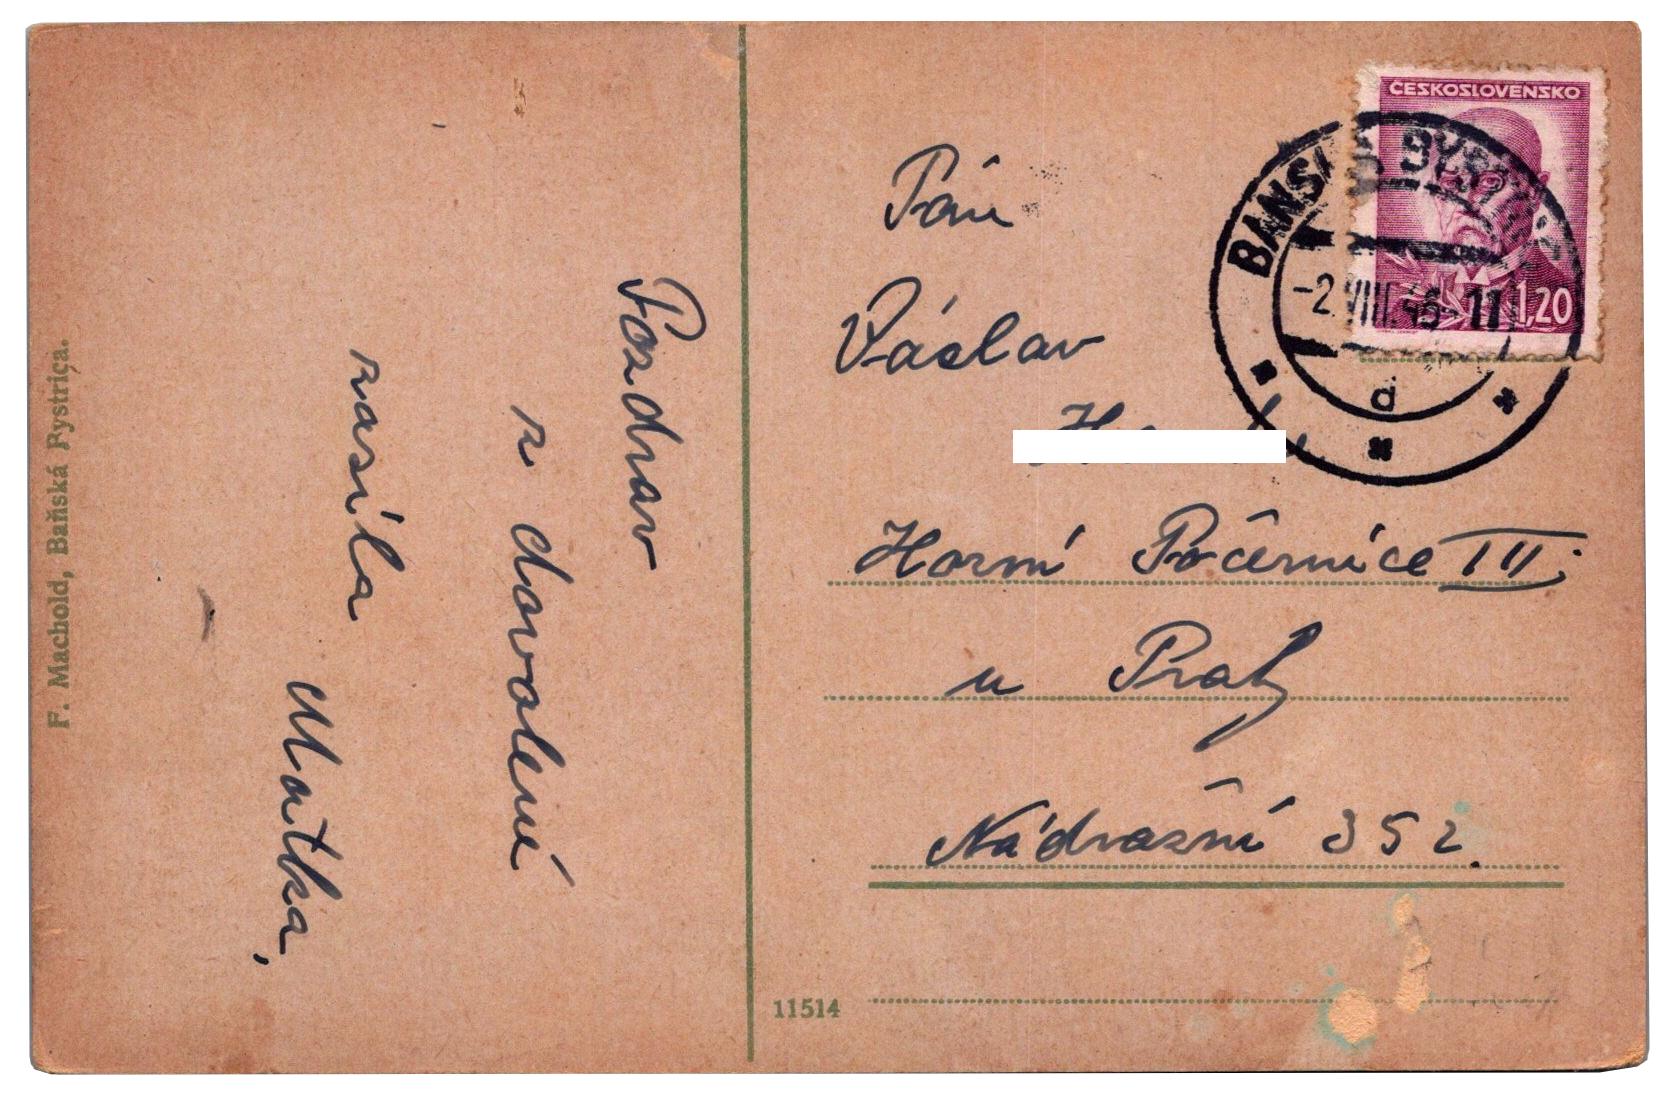 F. Machold, Baňská Bystrica.
Pozdrav
z dovolení
zasíla
Matka,
11514
ČESKOSLOVENSKO
1,20
BANSKÁ BYSTRICA
-2.VIII.46-11
d
Pán
Václav
Horní Počernice III;
u Prahy
Nádražní 352.